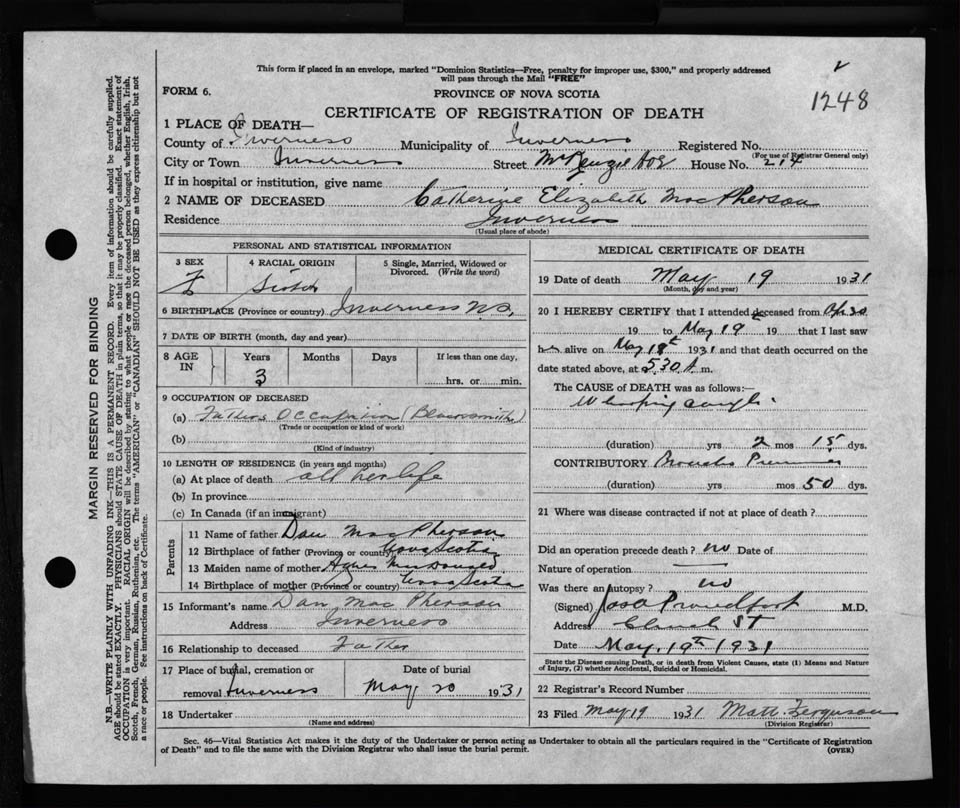 This form if placed in an envelope, marked "Dominion Statistics—Free, penalty for improper use, $300," and properly addressed
will pass through the Mail "FREE"
FORM 6.
PROVINCE OF NOVA SCOTIA
1248
CERTIFICATE OF REGISTRATION OF DEATH
1 PLACE OF DEATH—
County of Inverness Municipality of Inverness Registered No.
(For use of Registrar General only)
City or Town Inverness Street McKenzie Ave House No. 214
If in hospital or institution, give name
2 NAME OF DECEASED Catherine Elizabeth MacPherson
Residence Inverness
(Usual place of abode)
PERSONAL AND STATISTICAL INFORMATION
3 SEX 4 RACIAL ORIGIN 5 Single, Married, Widowed or
Divorced. (Write the word)
F Scotch
6 BIRTHPLACE (Province or country) Inverness N.S.
7 DATE OF BIRTH (month, day and year)
8 AGE IN Years Months Days If less than one day,
3 hrs. or min.
9 OCCUPATION OF DECEASED
(a) Fathers Occupation (Blacksmith)
(Trade or occupation or kind of work)
(b)
(Kind of industry)
10 LENGTH OF RESIDENCE (in years and months)
(a) At place of death all her life
(b) In province
(c) In Canada (if an immigrant)
Parents
11 Name of father Dan MacPherson
12 Birthplace of father (Province or country) Nova Scotia
13 Maiden name of mother Agnes McDonald
14 Birthplace of mother (Province or country) Nova Scotia
15 Informant's name Dan MacPherson
Address Inverness
16 Relationship to deceased Father
17 Place of burial, cremation or Date of burial
removal Inverness May 20 1931
18 Undertaker
(Name and address)
MEDICAL CERTIFICATE OF DEATH
19 Date of death May 19 1931
(Month, day and year)
20 I HEREBY CERTIFY that I attended deceased from Apr 30
19 to May 19 19 that I last saw
her alive on May 18th 1931 and that death occurred on the
date stated above, at 5.30 A m.
The CAUSE of DEATH was as follows:—
Whooping cough
(duration) yrs 2 mos 15 dys.
CONTRIBUTORY Broncho
(duration) yrs mos 50 dys.
21 Where was disease contracted if not at place of death?
Did an operation precede death? no Date of
Nature of operation
Was there an autopsy? no
(Signed) Proudfoot M.D.
Address Church St
Date May 19th 1931
State the Disease causing Death, or in death from Violent Causes, state (1) Means and Nature
of Injury, (2) whether Accidental, Suicidal or Homicidal.
22 Registrar's Record Number
23 Filed May 19 1931 Matt. Ferguson
(Division Registrar)
Sec. 46—Vital Statistics Act makes it the duty of the Undertaker or person acting as Undertaker to obtain all the particulars required in the "Certificate of Registration
of Death" and to file the same with the Division Registrar who shall issue the burial permit.
(OVER)
MARGIN RESERVED FOR BINDING
N.B.—WRITE PLAINLY WITH UNFADING INK—THIS IS A PERMANENT RECORD. Every item of information should be carefully supplied.
AGE should be stated EXACTLY. PHYSICIANS should STATE CAUSE OF DEATH in plain terms, so that it may be properly classified. Exact statement of
OCCUPATION is very important. RACIAL ORIGIN will be described by stating to what people or race the deceased person belonged, whether English, Irish,
Scotch, French, German, Russian, Ruthenian, etc. The terms "AMERICAN" or "CANADIAN" SHOULD NOT BE USED as they express citizenship but not
a race or people. See instructions on back of Certificate.